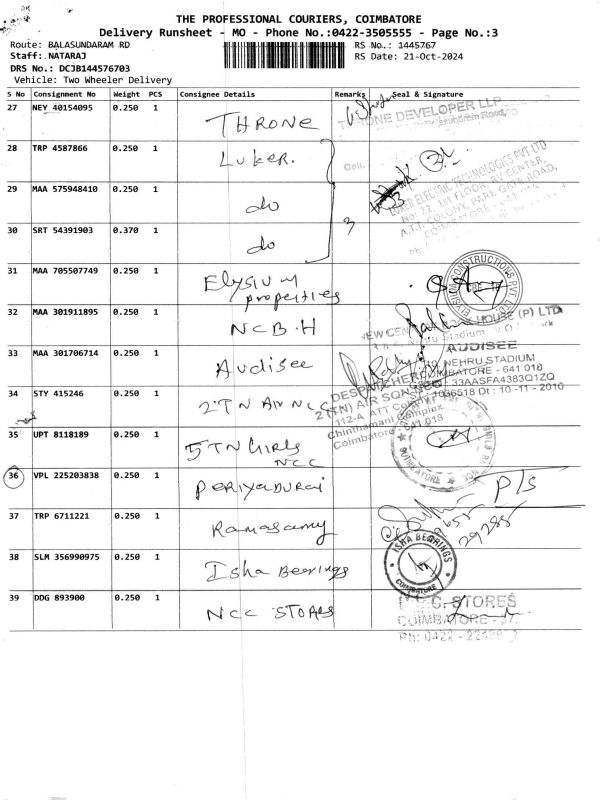 THE PROFESSIONAL COURIERS, COIMBATORE
Delivery Runsheet - MO - Phone No.:0422-3505555 - Page No.:3
Route: BALASUNDARAM RD RS No.: 1445767
Staff: NATARAJ RS Date: 21-Oct-2024
DRS No.: DCJB144576703
Vehicle: Two Wheeler Delivery
S No Consignment No Weight PCS Consignee Details Remarks Seal & Signature
27 NEY 40154095 0.250 1 THRONE
DEVELOPER LLP
28 TRP 4587866 0.250 1 Luker.
ELECTRIC TECHNOLOGIES PVT LTD
1st FLOOR, BY CENTER,
A.T.T. COLONY, PARK GATE ROAD,
29 MAA 575948410 0.250 1 do
3
30 SRT 54391903 0.370 1 do
31 MAA 705507749 0.250 1 Elysium
properties
ELYSIUM CONSTRUCTIONS PVT LTD
32 MAA 301911895 0.250 1 NCB.H
HOUSE (P) LTD
Nehru Stadium
33 MAA 301706714 0.250 1 Audisee
AUDISEE
NEHRU STADIUM
COIMBATORE - 641 018
33AASFA4383Q1ZQ
Dt : 10 - 11 - 2010
34 STY 415246 0.250 1 2 TN Air NCC
DESPATCHER
2 (TN) AIR SQN NCC
112-A ATT Colony
Chinthamani Complex
Coimbatore - 641 018
35 UPT 8118189 0.250 1 5 TN Girls
NCC
COIMBATORE
36 VPL 225203838 0.250 1 Periyadurai
P/s
37 TRP 6711221 0.250 1 Ramasamy
38 SLM 356990975 0.250 1 Isha Beerings
ISHA BEARINGS
COIMBATORE
39 DDG 893900 0.250 1 NCC STORES
C. STORES
COIMBATORE - 37.